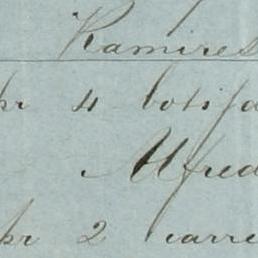 Ramires
pr 4 botija
Alfred
pr 2 carre